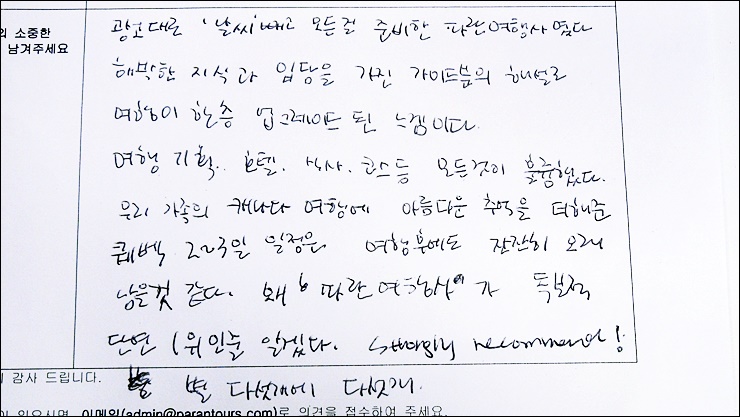 의 소중한
남겨주세요
광고대로 '날씨' 빼고 모든걸 준비한 파란여행사였다
해박한 지식과 입담을 가진 가이드분의 해설로
여행이 한층 업그레이드 된 느낌이다.
여행 기획, 호텔, 식사, 코스등 모든것이 훌륭했다.
우리 가족의 캐나다 여행에 아름다운 추억을 더해준
퀘벡 2박3일 일정은 여행후에도 잔잔히 오래
남을것 같다. 왜 '파란여행사'가 독보적
단연 1위인줄 알겠다. Strongly recommend!
감사 드립니다.
별 다섯개에 다섯개.
있으시면, 이메일(admin@parantours.com)로 의견을 접수하여 주세요.